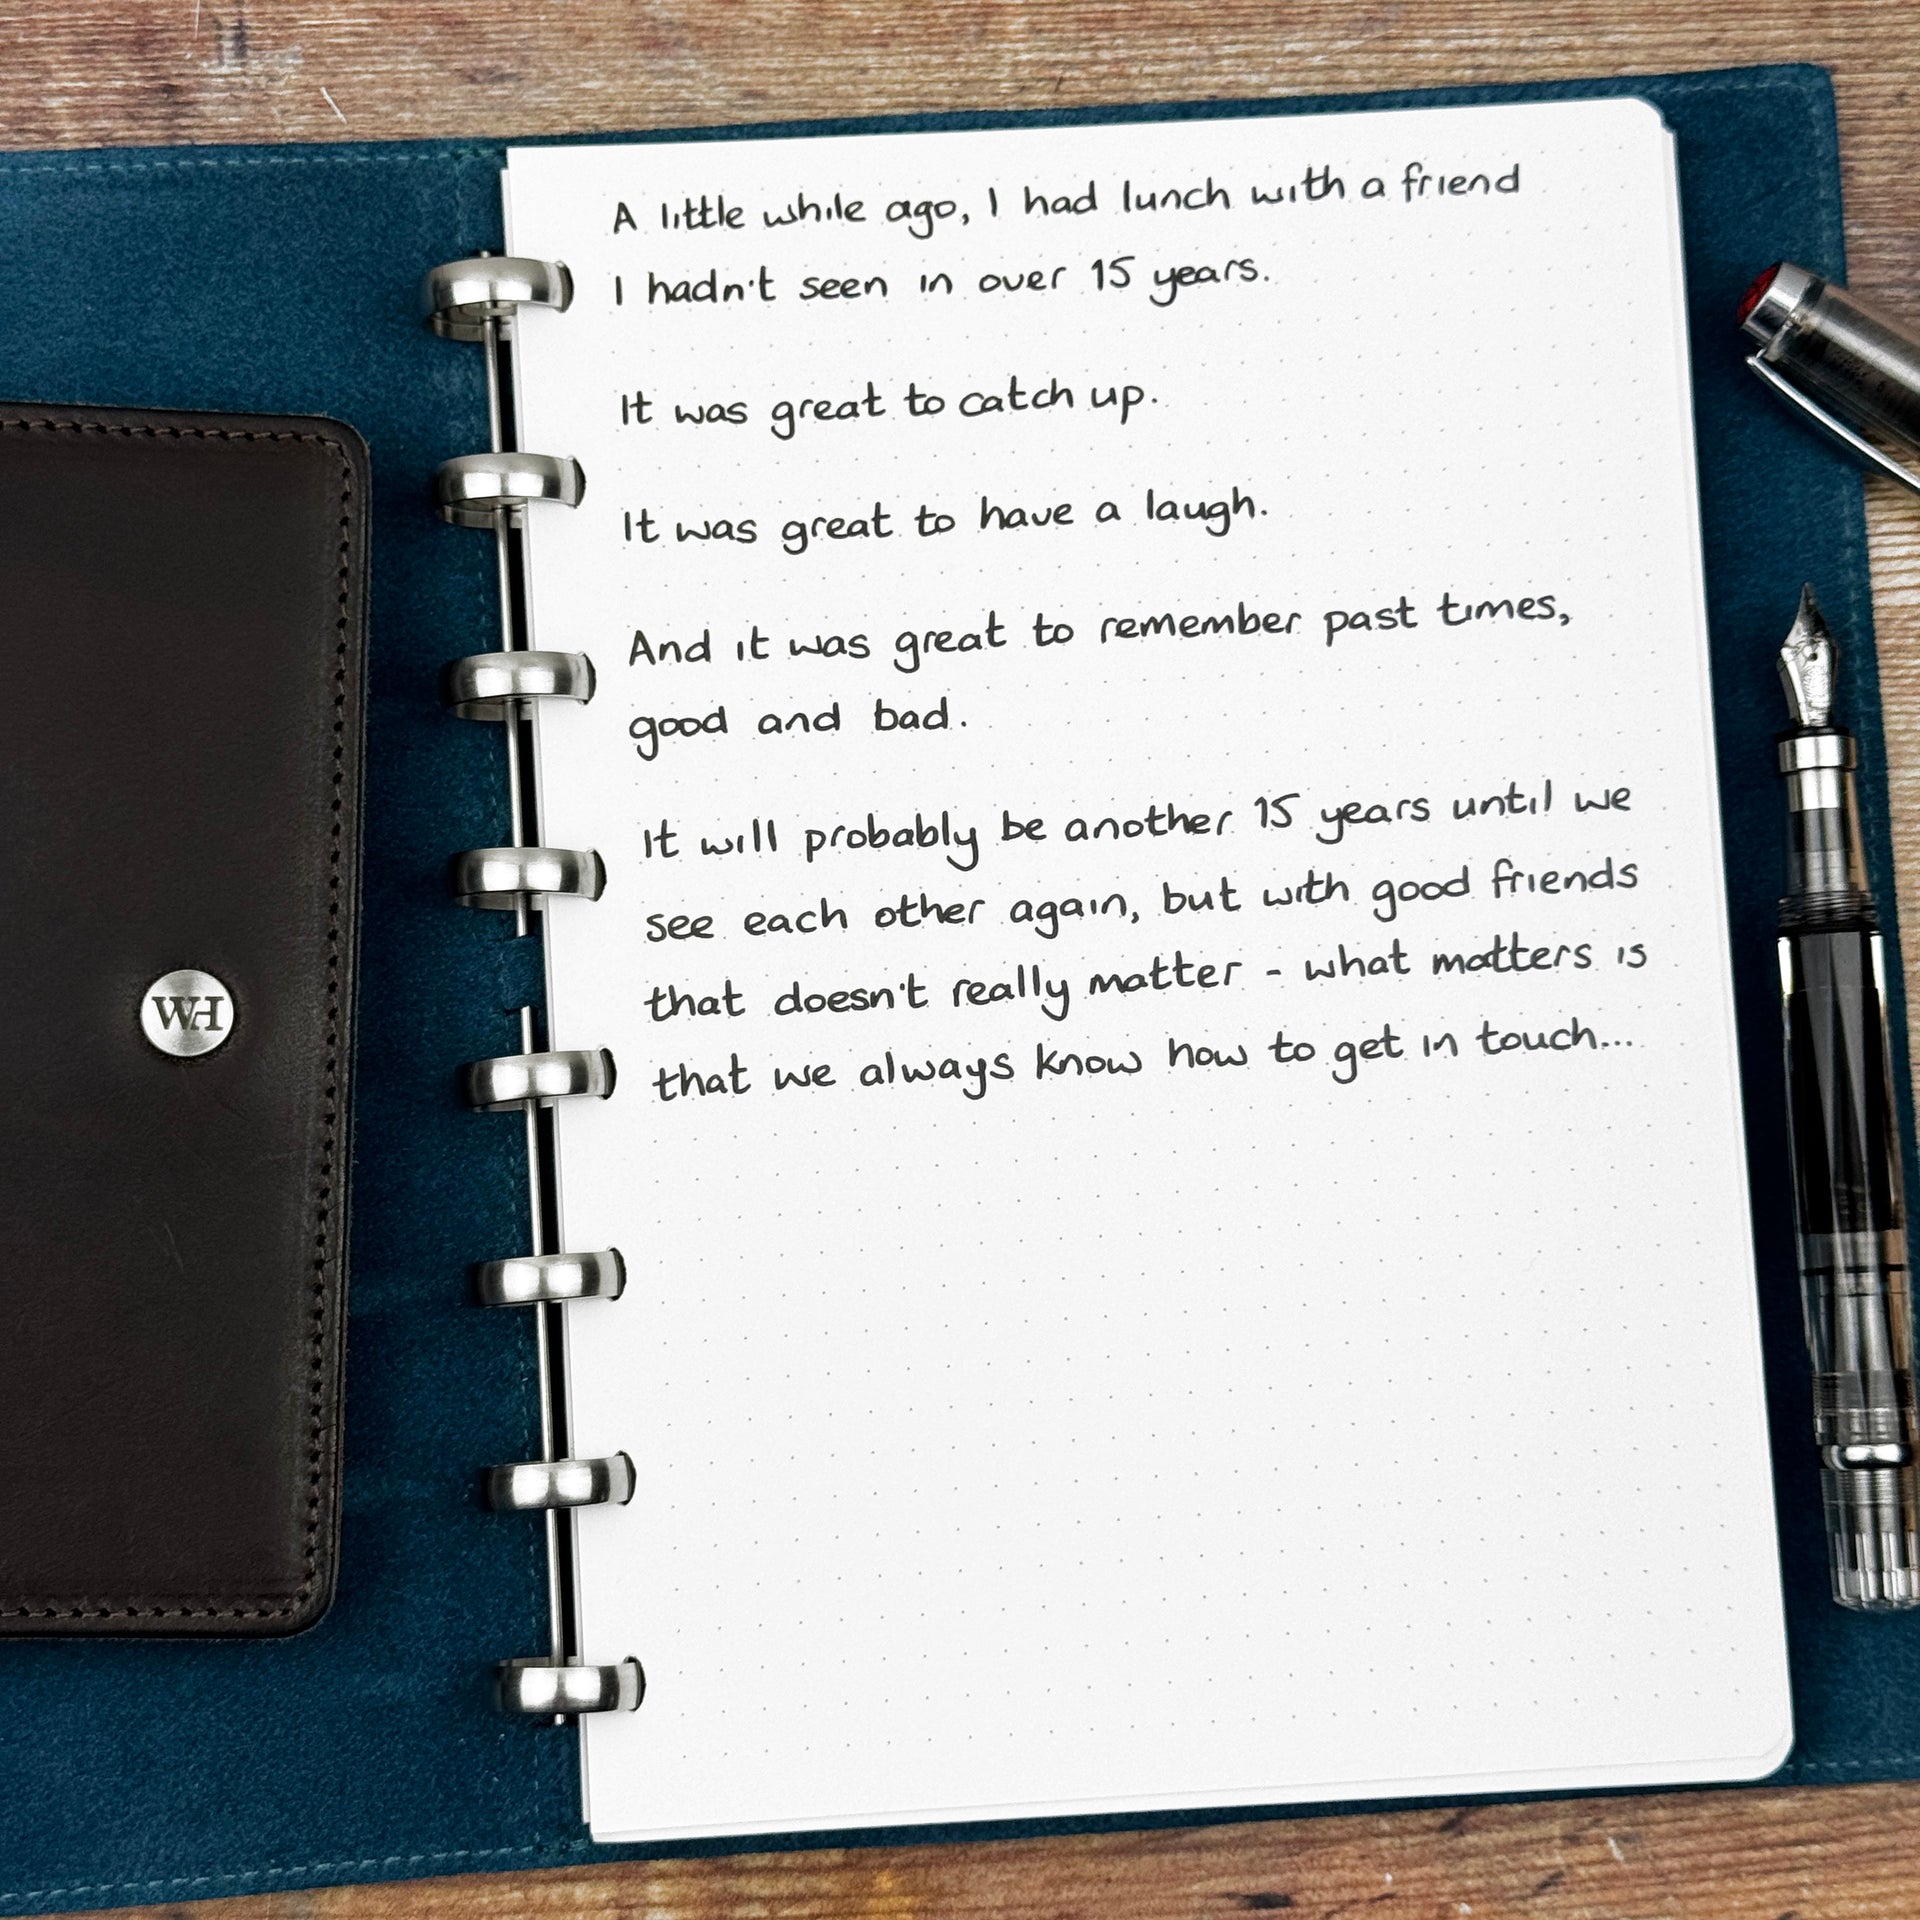 A little while ago, I had lunch with a friend
I hadn't seen in over 15 years.
It was great to catch up.
It was great to have a laugh.
And it was great to remember past times,
good and bad.
It will probably be another 15 years until we
see each other again, but with good friends
that doesn't really matter - what matters is
that we always know how to get in touch...
WH